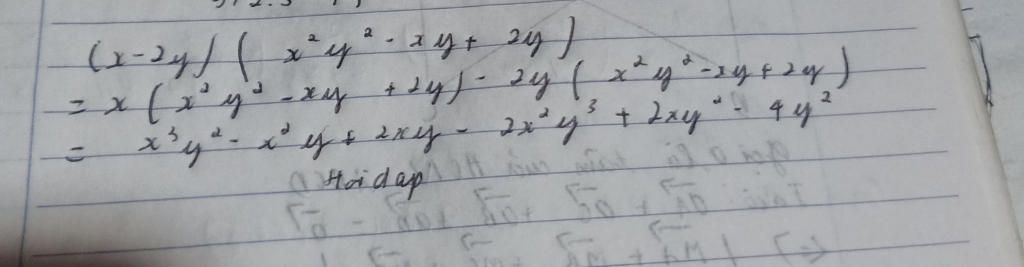 (x-2y)(x²y²-xy+2y)
= x(x²y²-xy+2y)-2y(x²y²-xy+2y)
= x³y²-x²y+2xy-2x²y³+2xy²-4y²
Hoidap